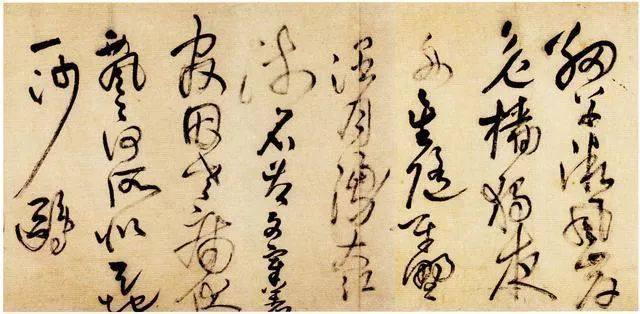 細草微風岸
危檣獨夜
舟星隨平野
濶月湧大江
流名豈文章著
官因老病休
飄飄何所似天地
一沙鷗